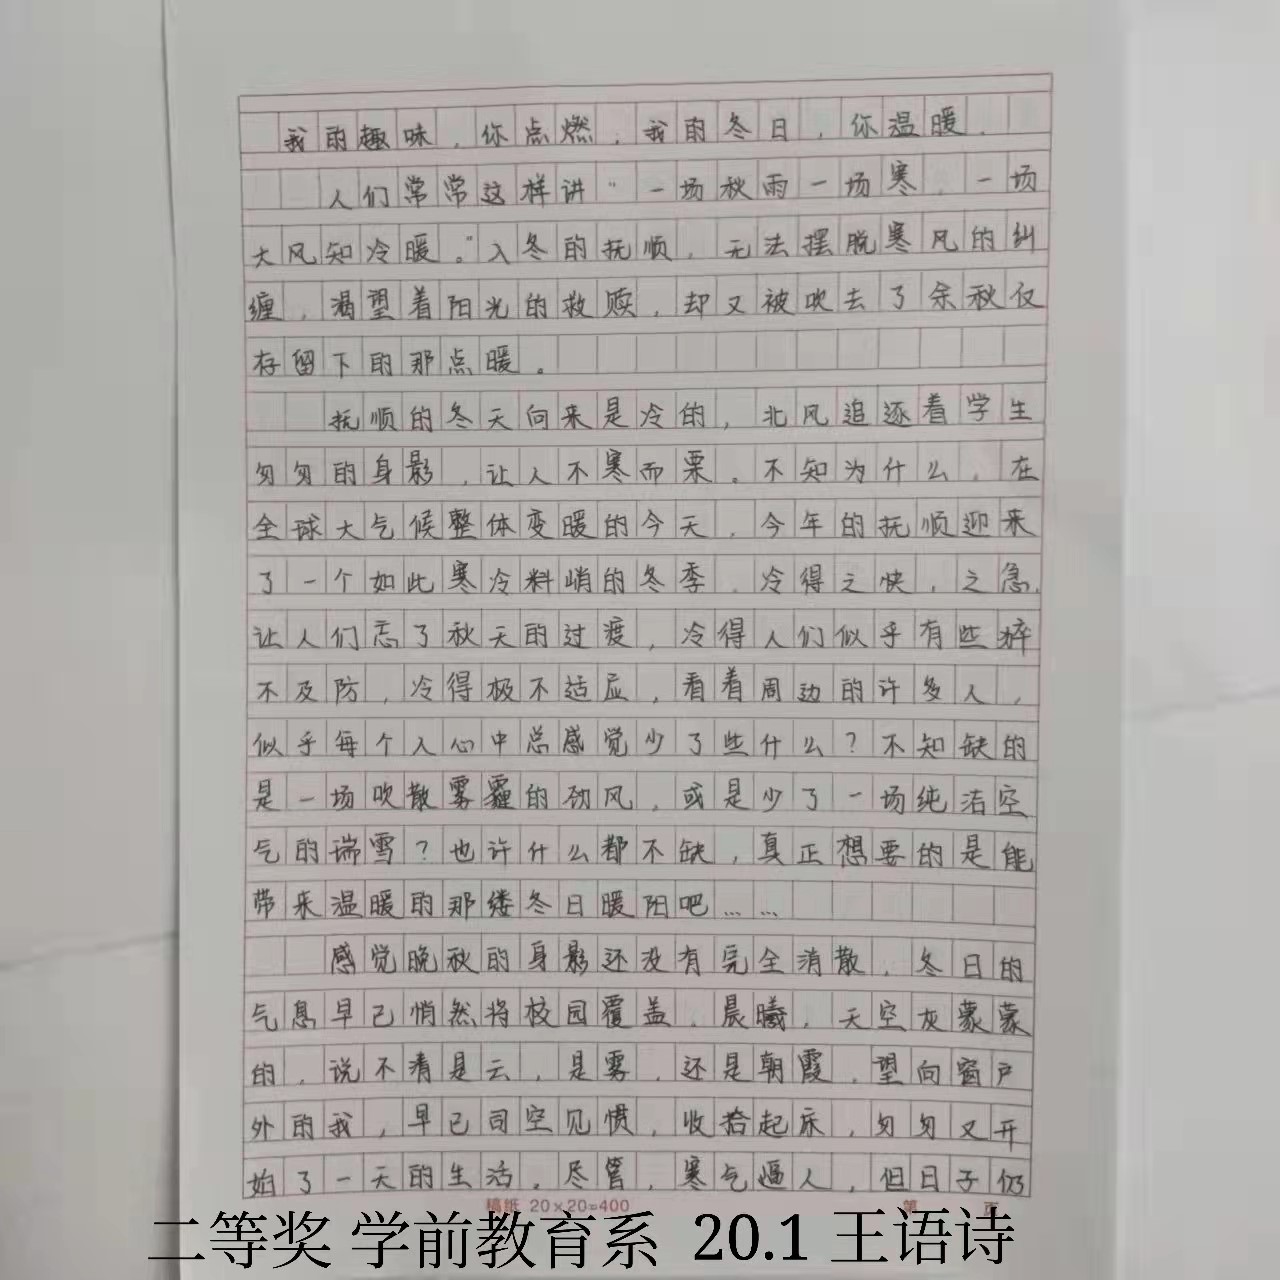 我的趣味，你点燃，我的冬日，你温暖．
人们常常这样讲“一场秋雨一场寒，一场
大风知冷暖。”入冬的抚顺，无法摆脱寒风的纠
缠，渴望着阳光的救赎，却又被吹去了余秋仅
存留下的那点暖。
抚顺的冬天向来是冷的，北风追逐着学生
匆匆的身影，让人不寒而栗。不知为什么，在
全球大气候整体变暖的今天，今年的抚顺迎来
了一个如此寒冷料峭的冬季，冷得之快，之急，
让人们忘了秋天的过渡，冷得人们似乎有些猝
不及防，冷得极不适应，看着周边的许多人，
似乎每个人心中总感觉少了些什么？不知缺的
是一场吹散雾霾的劲风，或是少了一场纯洁空
气的瑞雪？也许什么都不缺，真正想要的是能
带来温暖的那缕冬日暖阳吧……
感觉晚秋的身影还没有完全消散，冬日的
气息早已悄然将校园覆盖，晨曦，天空灰蒙蒙
的，说不清是云，是雾，还是朝霞，望向窗户
外的我，早已司空见惯，收拾起床，匆匆又开
始了一天的生活。尽管，寒气逼人，但日子仍
稿纸 20×20=400 第 页
二等奖 学前教育系 20.1 王语诗